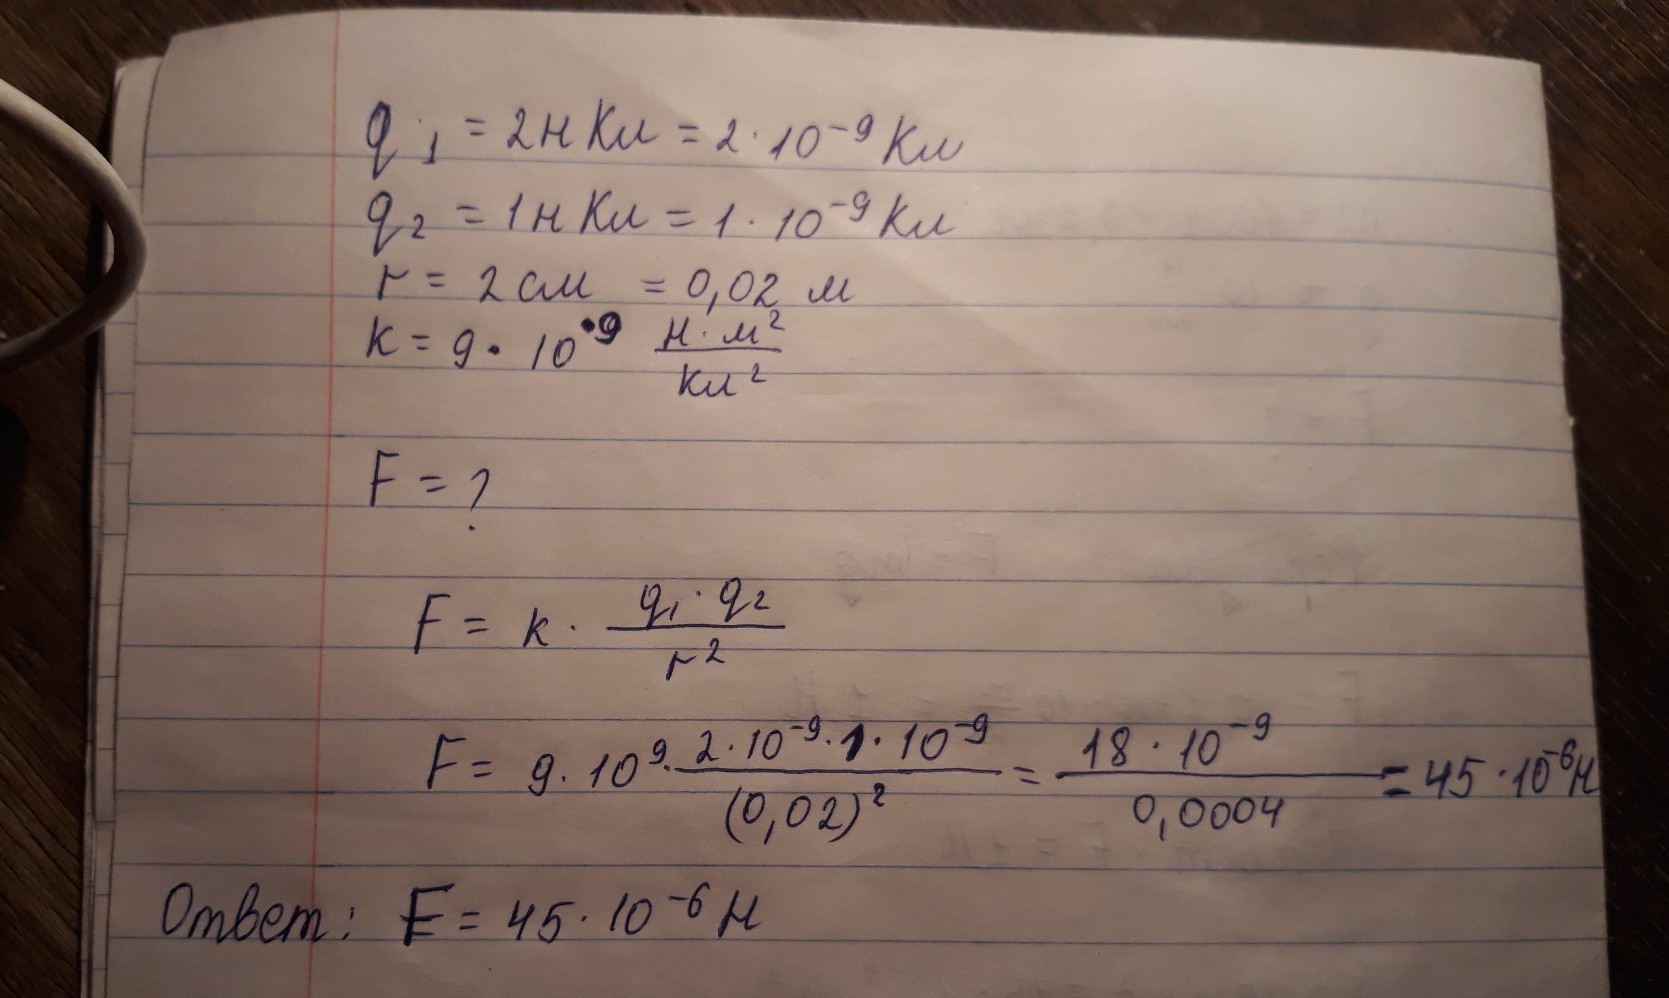 q₁ = 2нКл = 2·10⁻⁹ Кл
q₂ = 1нКл = 1·10⁻⁹ Кл
r = 2см = 0,02 м
k = 9·10⁹ Н·м²/Кл²
F = ?
F = k · q₁·q₂/r²
F = 9·10⁹·2·10⁻⁹·1·10⁻⁹/(0,02)² = 18·10⁻⁹/0,0004 = 45·10⁻⁶Н
Ответ: F = 45·10⁻⁶ Н